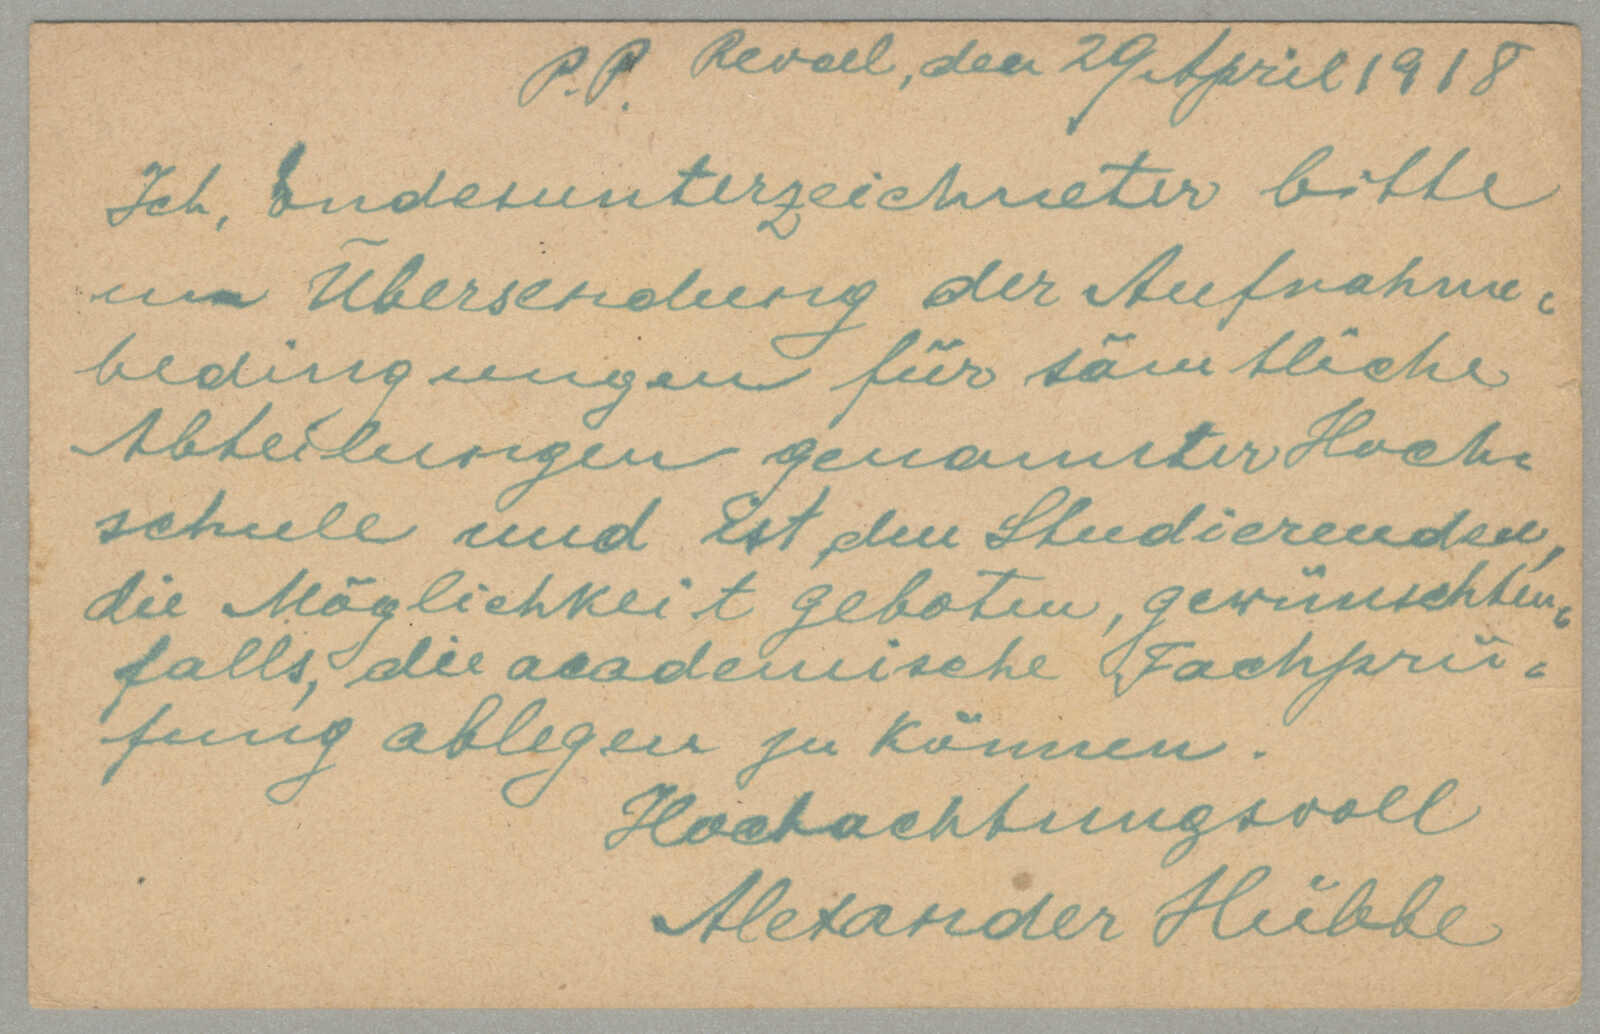 P.P. Reval, den 29 April 1918
Ich, Endesunterzeichneter bitte
um Übersendung der Aufnahme-
bedingungen für sämtliche
Abteilungen genannter Hoch-
schule und ist den Studierenden,
die Möglichkeit geboten, gewünschten-
falls, die academische Fachprü-
fung ablegen zu können.
Hochachtungsvoll
Alexander Hübbe